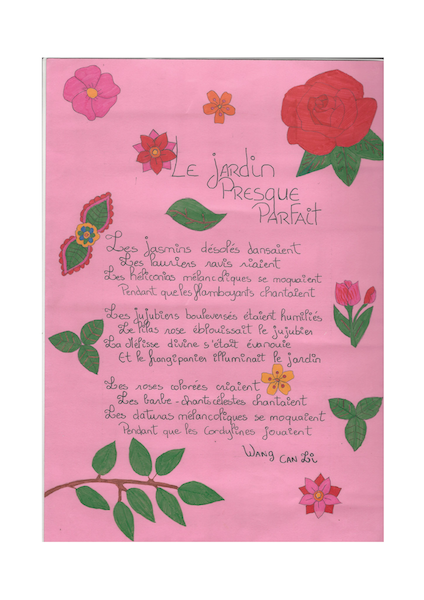 Le jardin
Presque
Parfait
Les jasmins désolés dansaient
Les lauriers ravis riaient
Les héliconias mélancoliques se moquaient
Pendant que les flamboyants chantaient
Les jujubiers bouleversés étaient humiliés
Le lilas rose éblouissait le jujubier
La mélisse divine s'était évanouie
Et le frangipanier illuminait le jardin
Les roses colorées criaient
Les barbe-chanticélestes chantaient
Les daturas mélancoliques se moquaient
Pendant que les Cordylines jouaient
Wang Can Li